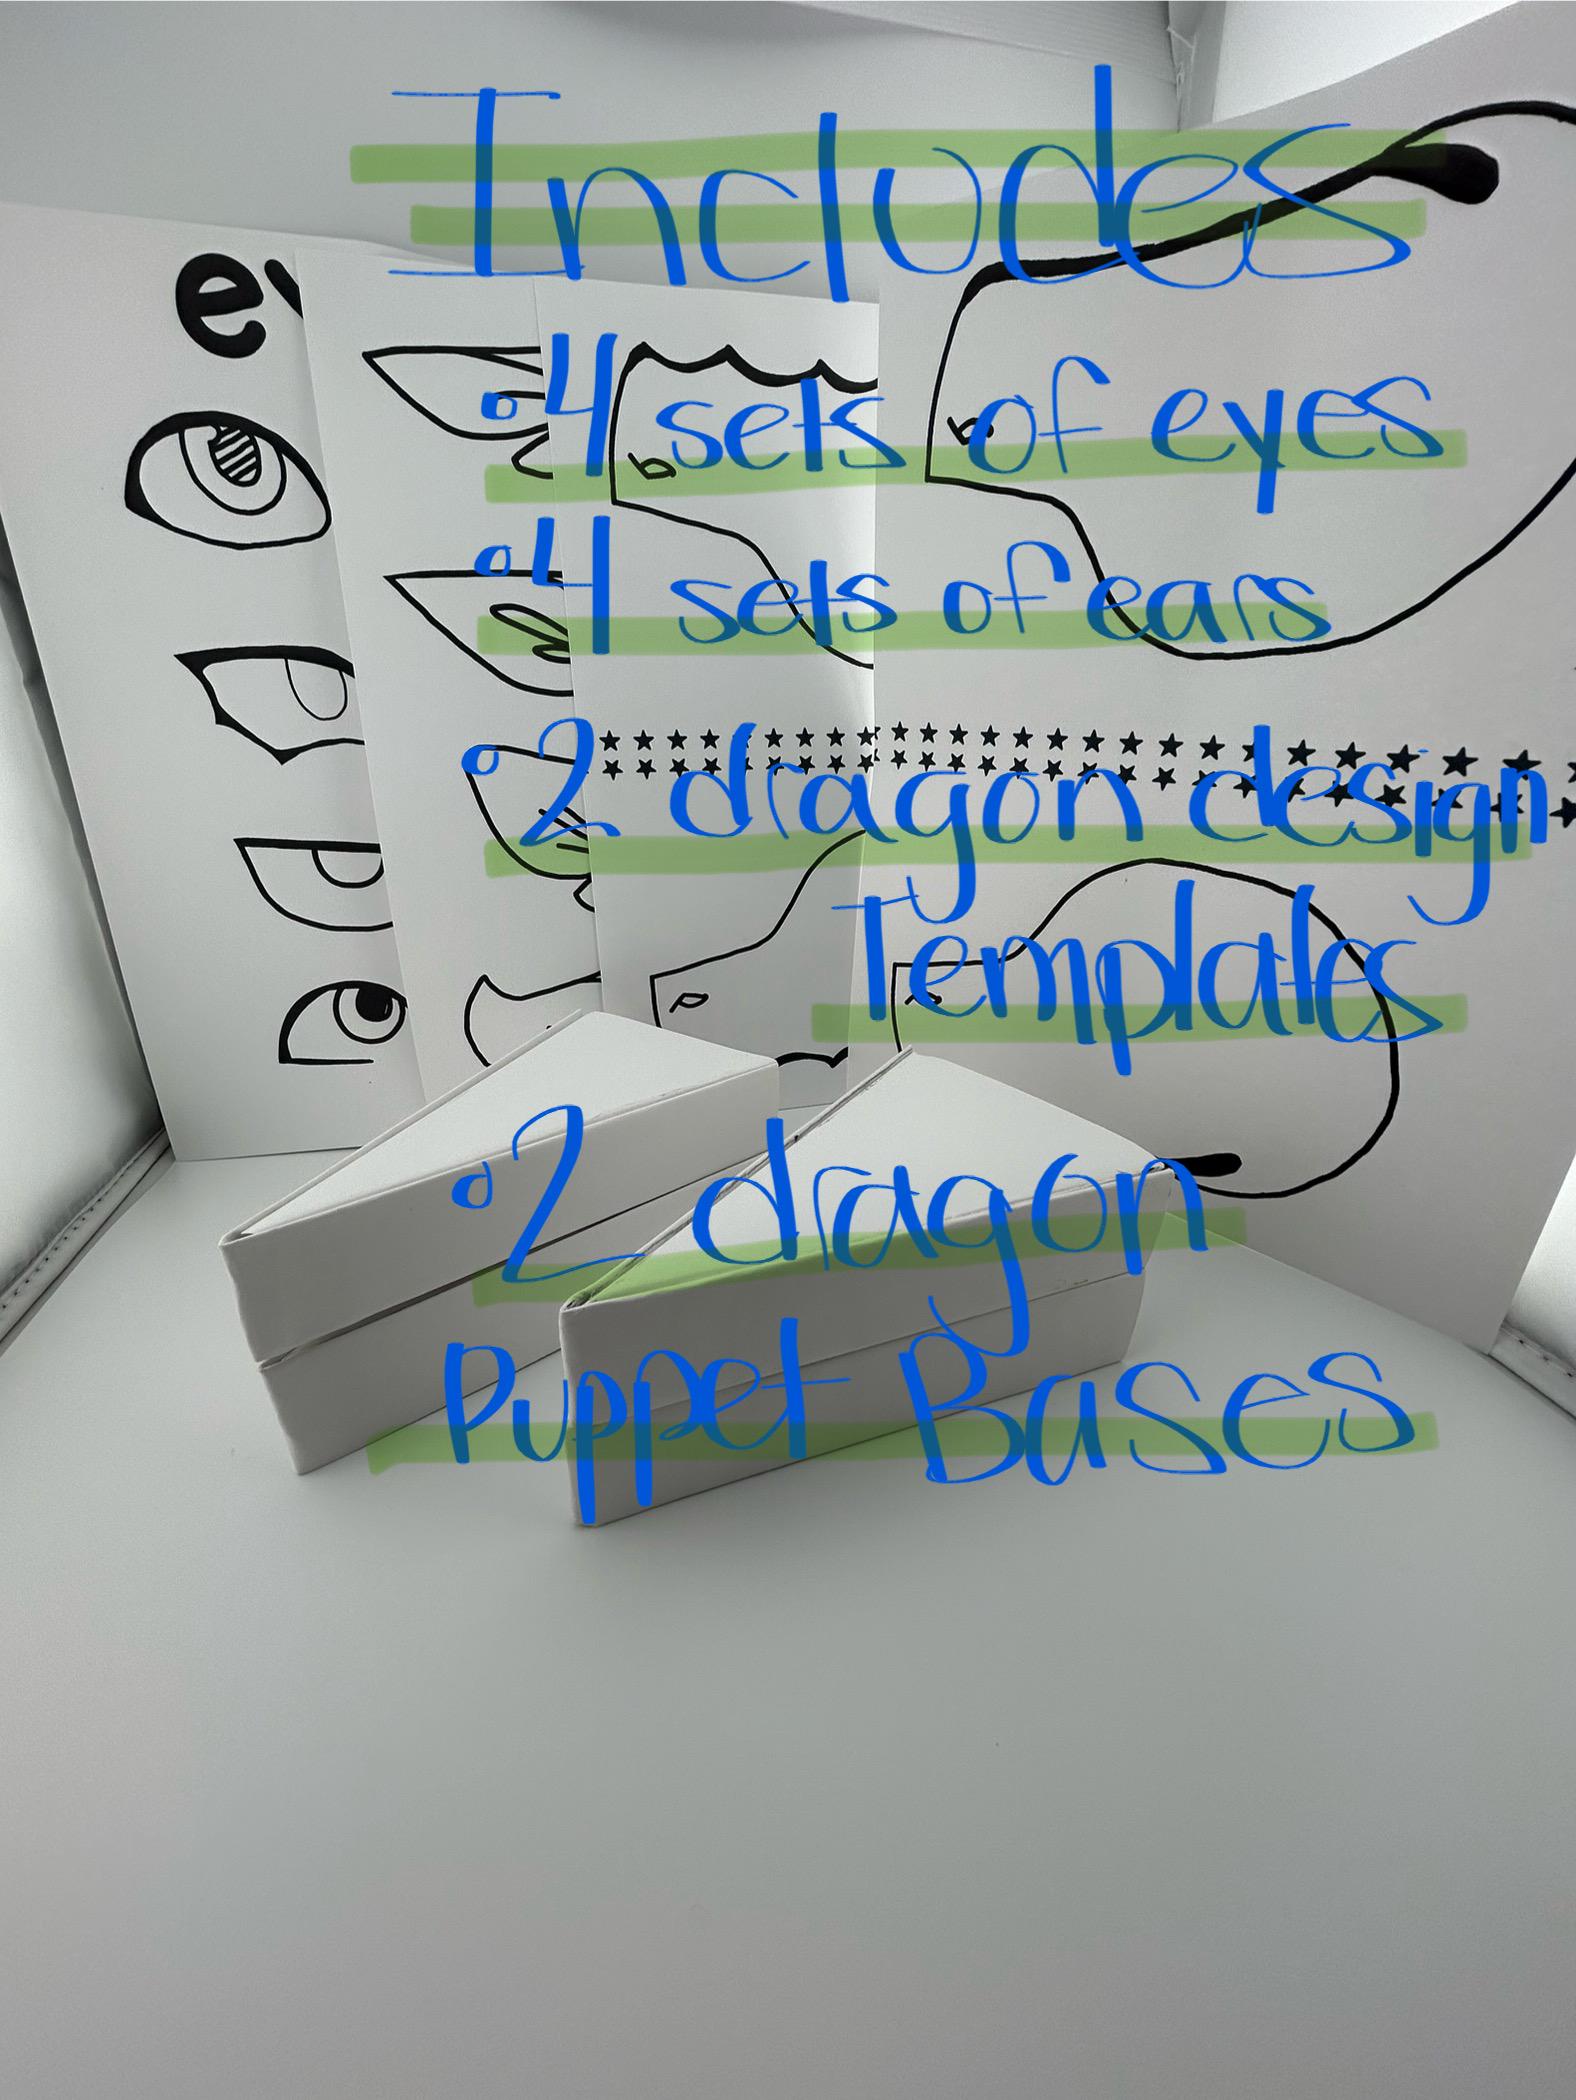 Includes
ey
4 sets of eyes
4 sets of ears
2 dragon design
Templates
2 dragon
Puppet Bases